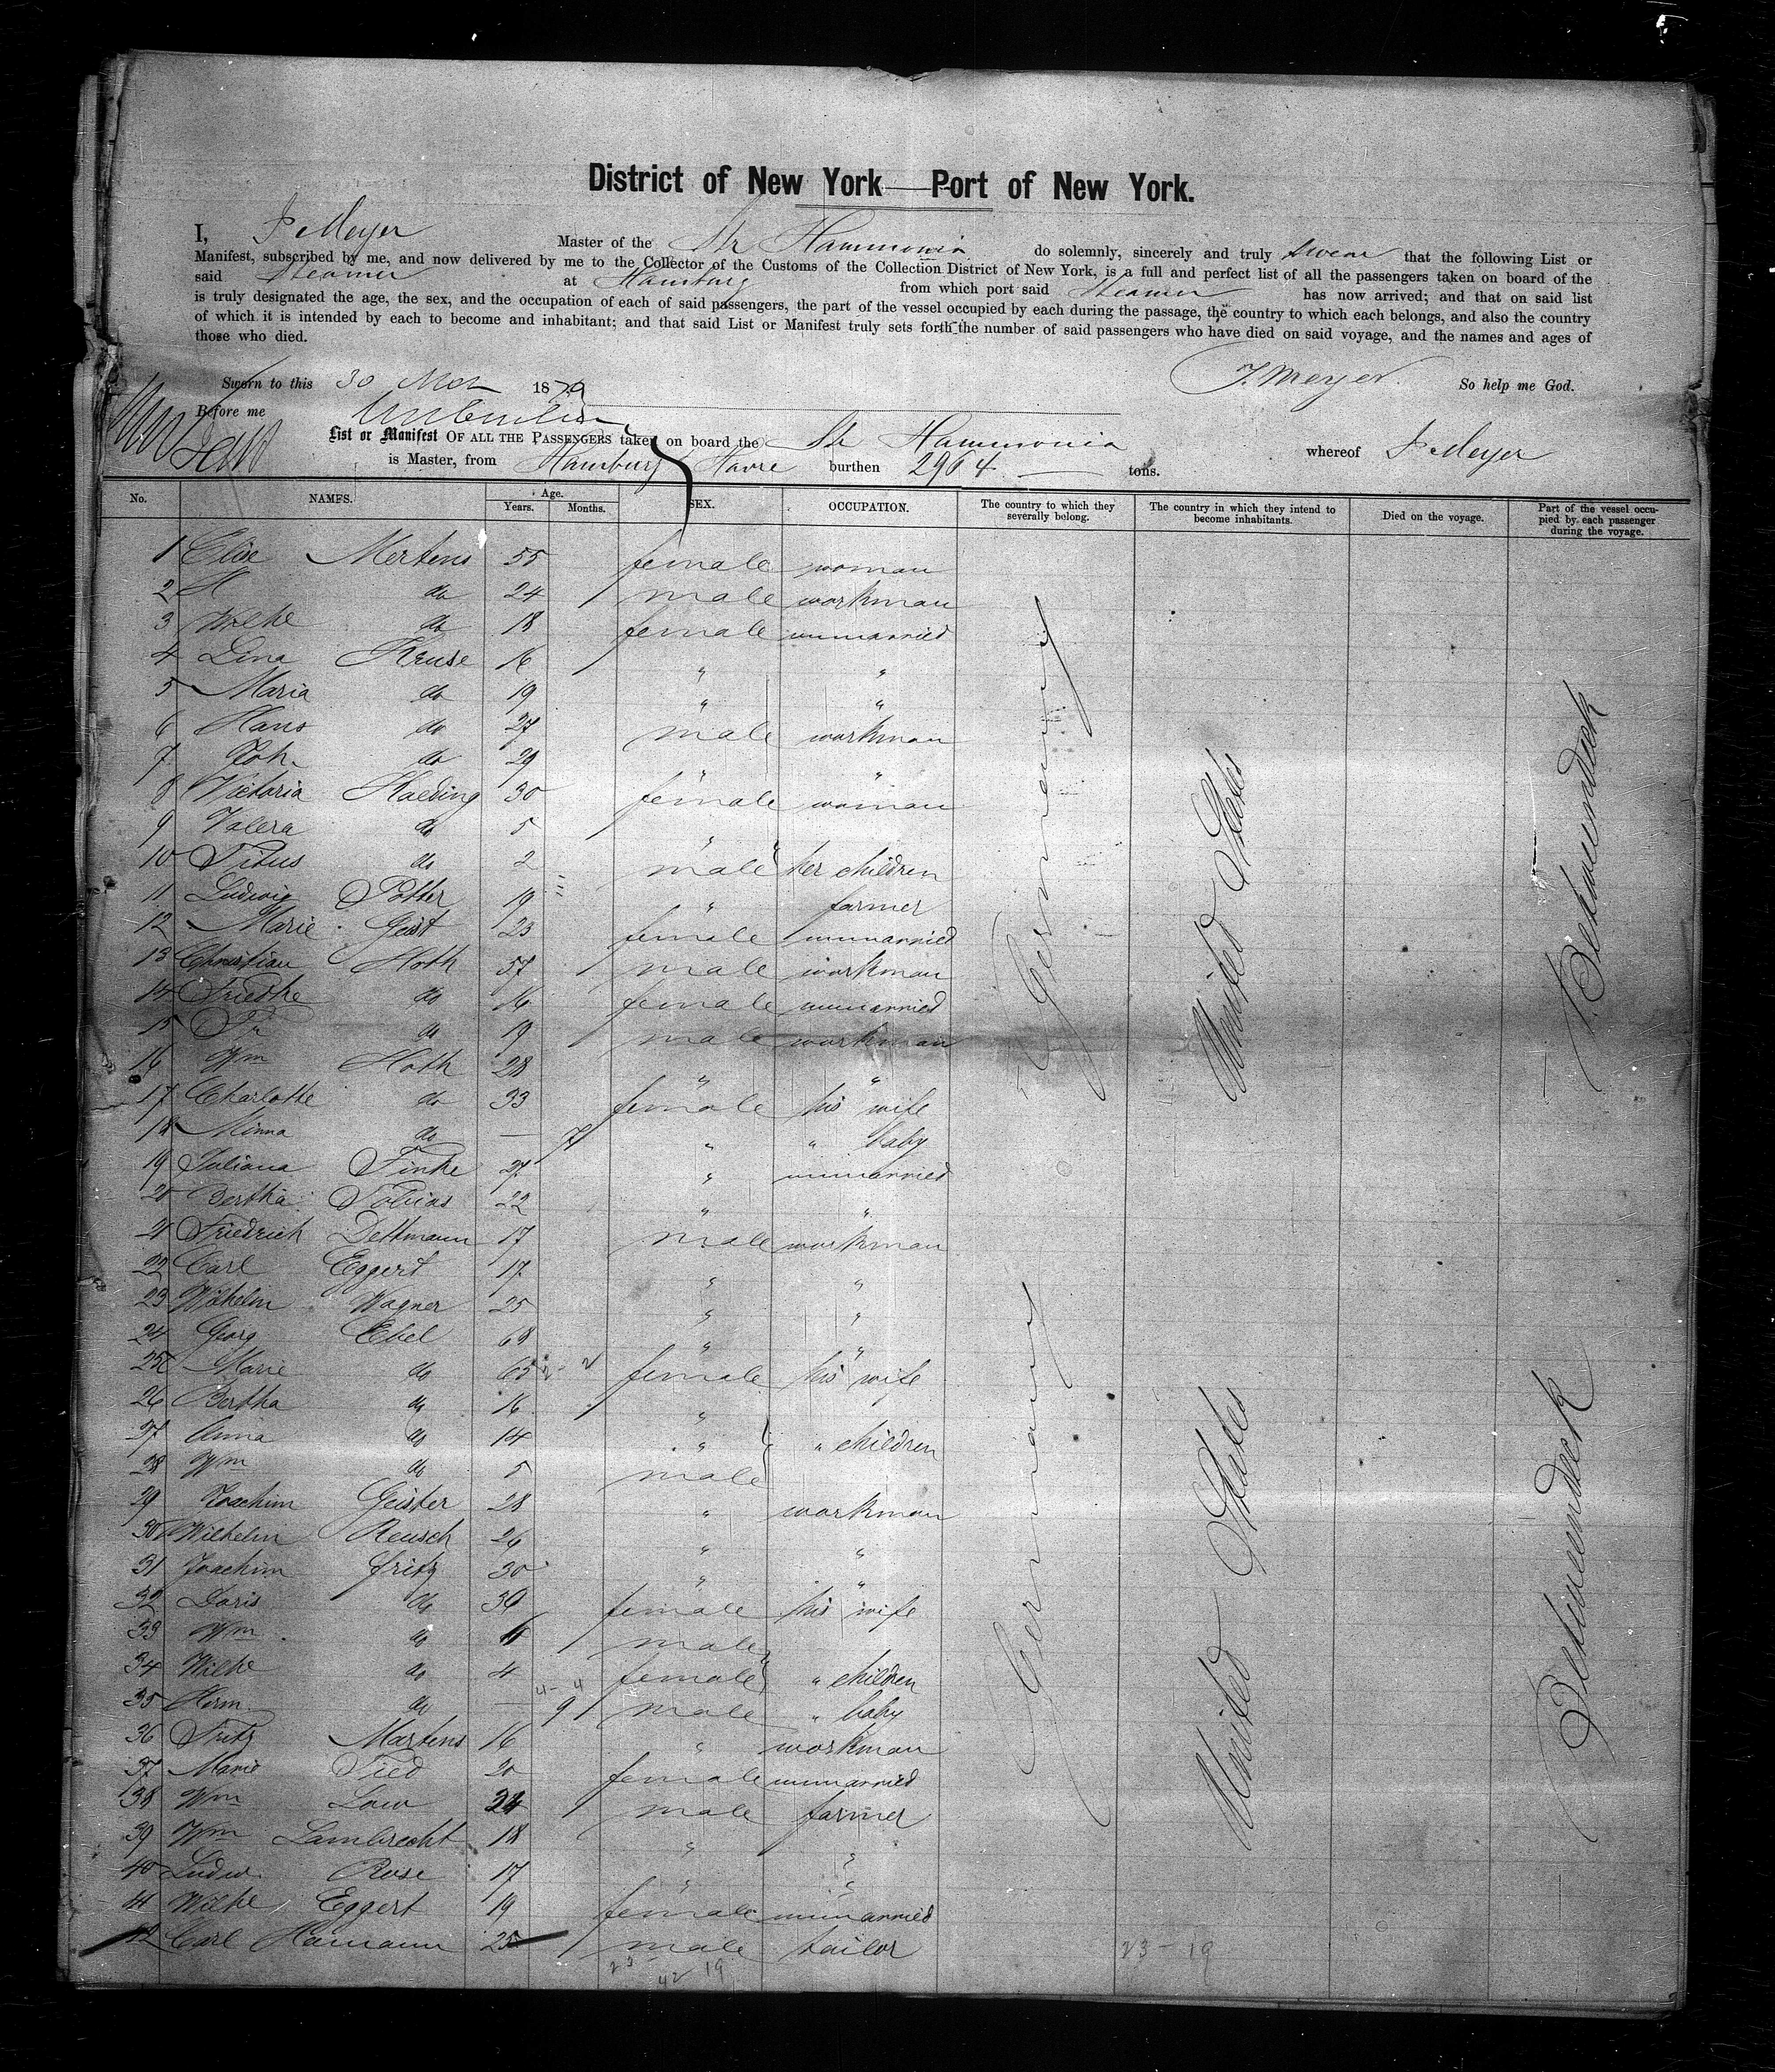 District of New York — Port of New York.
I, J Meyer Master of the Str Hammonia do solemnly, sincerely and truly swear that the following List or
Manifest, subscribed by me, and now delivered by me to the Collector of the Customs of the Collection District of New York, is a full and perfect list of all the passengers taken on board of the
said Steamer at Hamburg from which port said Steamer has now arrived; and that on said list
is truly designated the age, the sex, and the occupation of each of said passengers, the part of the vessel occupied by each during the passage, the country to which each belongs, and also the country
of which it is intended by each to become and inhabitant; and that said List or Manifest truly sets forth the number of said passengers who have died on said voyage, and the names and ages of
those who died.
Sworn to this 30 1879 J. Meyer. So help me God.
Before me
List or Manifest OF ALL THE PASSENGERS taken on board the Str Hammonia whereof J Meyer
is Master, from Hamburg Havre burthen 2964 tons.
No. NAMES. Age. Years. Months. SEX. OCCUPATION. The country to which they severally belong. The country in which they intend to become inhabitants. Died on the voyage. Part of the vessel occupied by each passenger during the voyage.
1 Elise Mertens 55 female woman
2 H do 24 male workman
3 Wilhe do 18 female unmarried
4 Lina Kruse 16 " "
5 Maria do 19 " "
6 Hans do 27 male workman
7 Joh. do 29 " "
8 Victoria Haeding 30 female woman
9 Valera do 5 "
10 Titus do 2 male her children
11 Ludwig Potter 19 " farmer
12 Marie Geist 23 female unmarried
13 Christian Hoth 57 male workman
14 Friedke do 16 female unmarried
15 Fr do 19 male workman
16 Wm Hoth 28 " "
17 Charlotte do 33 female his wife
18 Minna do — 7 " " baby
19 Juliana Finke 27 " unmarried
20 Bertha Tobias 22 " "
21 Friedrich Dettmann 17 male workman
22 Carl Eggert 17 " "
23 Wilhelm Wagner 25 " "
24 Georg Ebel 68 " "
25 Marie do 65 female his wife
26 Bertha do 16 "
27 Anna do 14 " " children
28 Wm do 5 male
29 Joachim Geister 28 " workman
30 Wilhelm Reusch 26 " "
31 Joachim Fritz 30 " "
32 Doris do 30 female his wife
33 Wm do 6 male
34 Wilhe do 4 female " children
35 Herm do — 9 male " baby
36 Fritz Martens 16 " workman
37 Marie Tied 20 female unmarried
38 Wm Low 24 male farmer
39 Wm Lambrecht 18 " "
40 Ludw. Rose 17 " "
41 Wilhe Eggert 19 female unmarried
42 Carl Hamann 25 male tailor
Germany
United States
Zwischendeck
Germany
United States
Zwischendeck
23 19
42
23 - 19